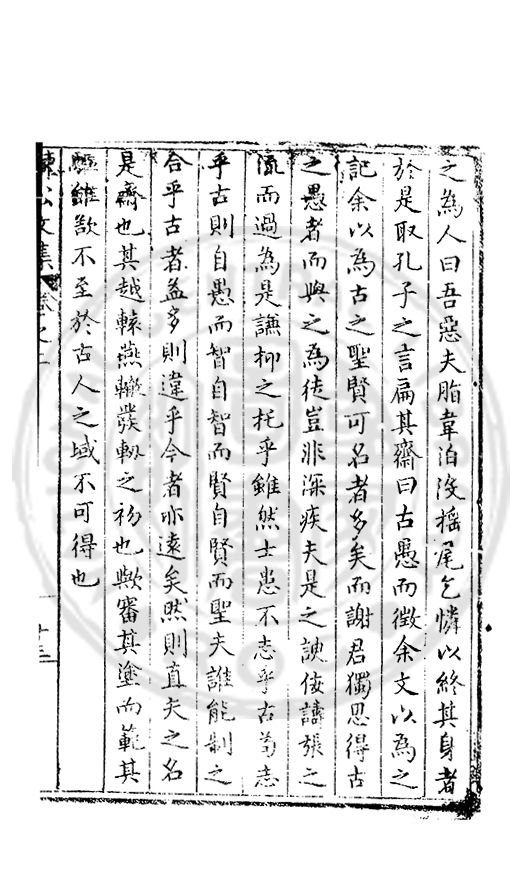 之為人曰吾惡夫脂韋泊沒搖尾乞憐以終其身者
於是取孔子之言扁其齋曰古愚而徵余文以為之
記余以為古之聖賢可名者多矣而謝君獨思得古
之愚者而與之為徒豈非深疾夫是之諛佞譸張之
流而過為是謙抑之托乎雖然士患不志乎古苟志
乎古則自愚而智自智而賢自賢而聖夫誰能制之
合乎古者益多則違乎今者亦遠矣然則直夫之名
是齋也其越轅燕轍發軔之初也歟審其塗而範其
驅雖欲不至於古人之域不可得也
公文集 卷之二
十三